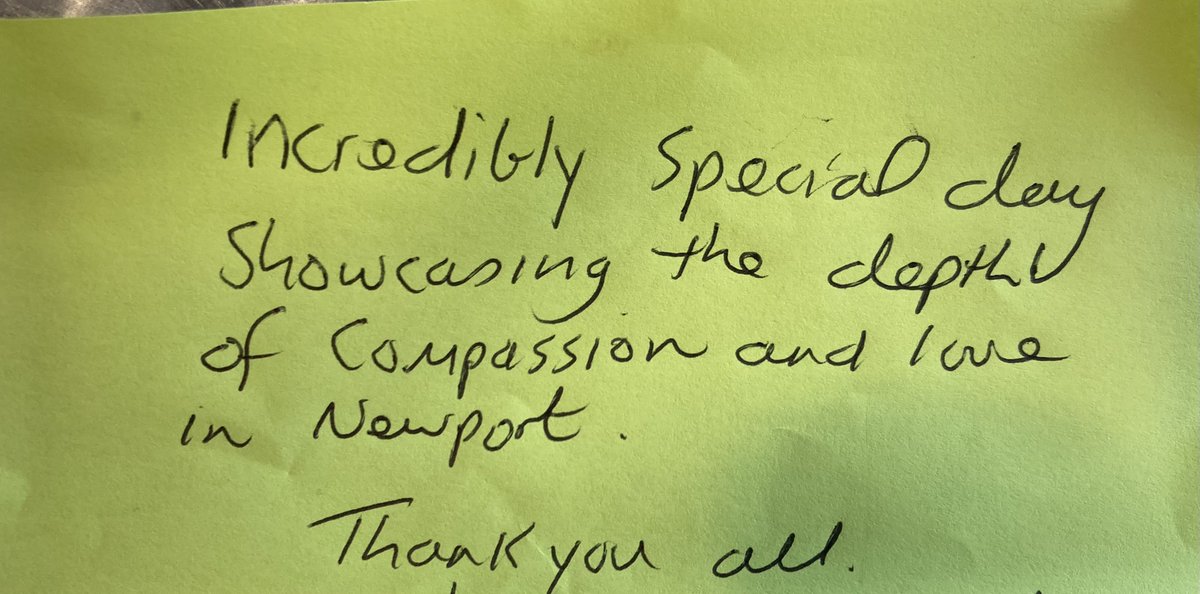 Incredibly Special day
Showcasing the depth
of Compassion and love
in Newport.
Thank you all.